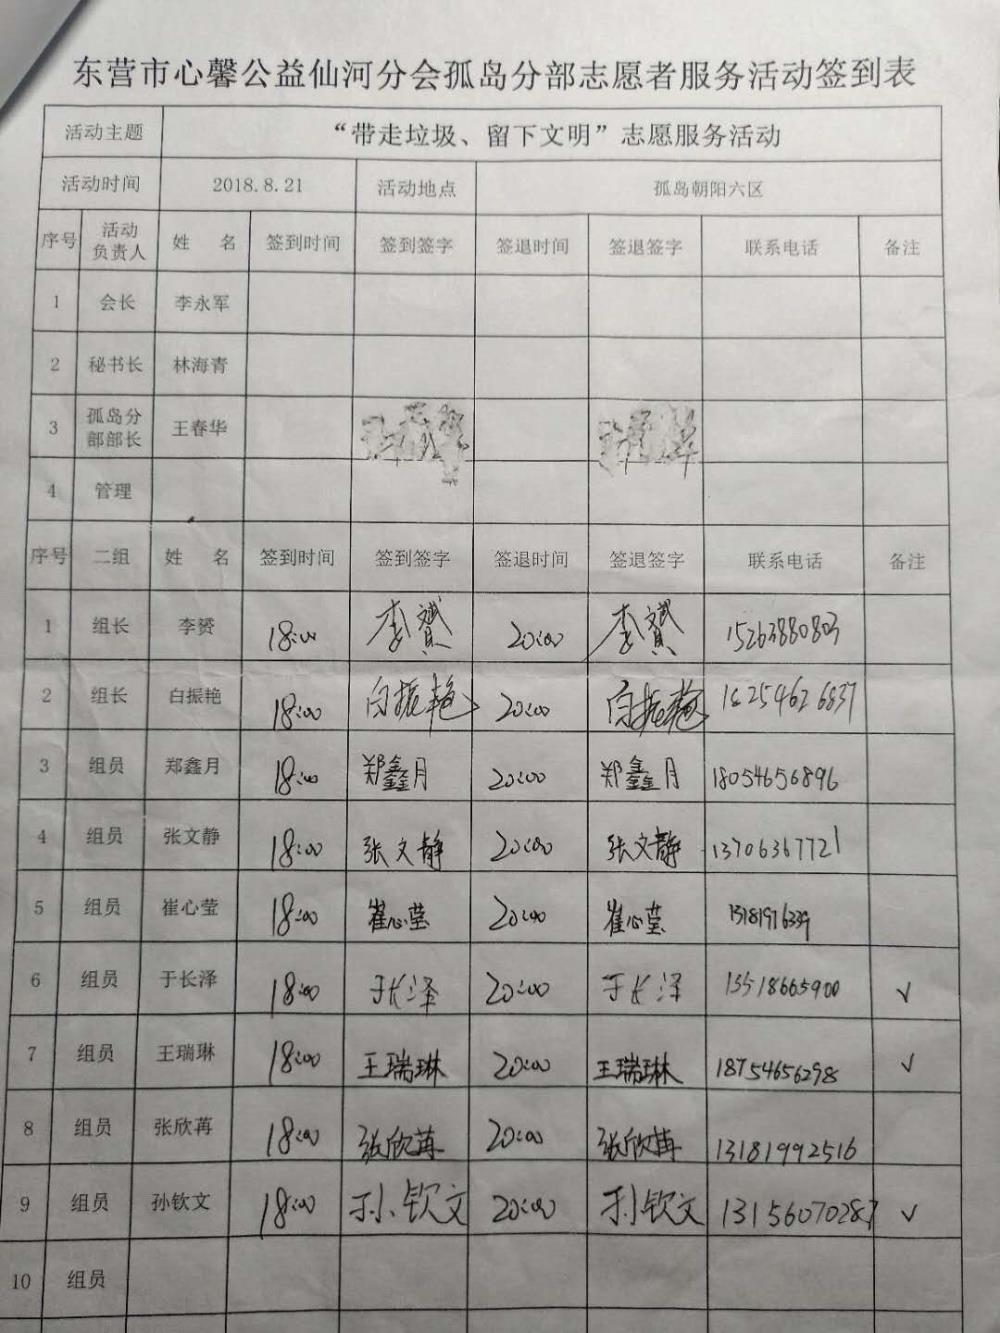 东营市心馨公益仙河分会孤岛分部志愿者服务活动签到表
活动主题 “带走垃圾、留下文明”志愿服务活动
活动时间 2018.8.21 活动地点 孤岛朝阳六区
序号 活动负责人 姓 名 签到时间 签到签字 签退时间 签退签字 联系电话 备注
1 会长 李永军
2 秘书长 林海青
3 孤岛分部部长 王春华
4 管理
序号 二组 姓 名 签到时间 签到签字 签退时间 签退签字 联系电话 备注
1 组长 李赟 18:00 李赟 20:00 李赟 15263880803
2 组长 白振艳 18:00 白振艳 20:00 白振艳
3 组员 郑鑫月 18:00 郑鑫月 20:00 郑鑫月 18054656896
4 组员 张文静 18:00 张文静 20:00 张文静 13706367721
5 组员 崔心莹 18:00 崔心莹 20:00 崔心莹
6 组员 于长泽 18:00 于长泽 20:00 于长泽 ✓
7 组员 王瑞琳 18:00 王瑞琳 20:00 王瑞琳 18754656298 ✓
8 组员 张欣苒 18:00 张欣苒 20:00 张欣苒 13181992516
9 组员 孙钦文 18:00 孙钦文 20:00 孙钦文 13156070287 ✓
10 组员